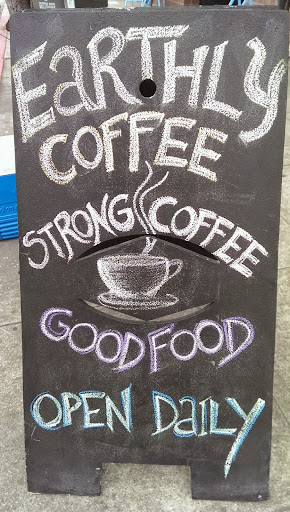 EaRTHLY
COFFEE
STRONG COFFEE
GOOD FOOD
OPEN DaILY